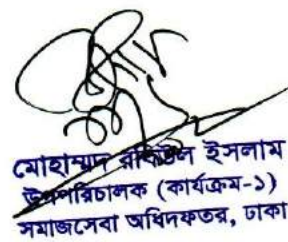 মোহাম্মদ রকিউল ইসলাম
উপপরিচালক (কার্যক্রম-১)
সমাজসেবা অধিদফতর, ঢাকা